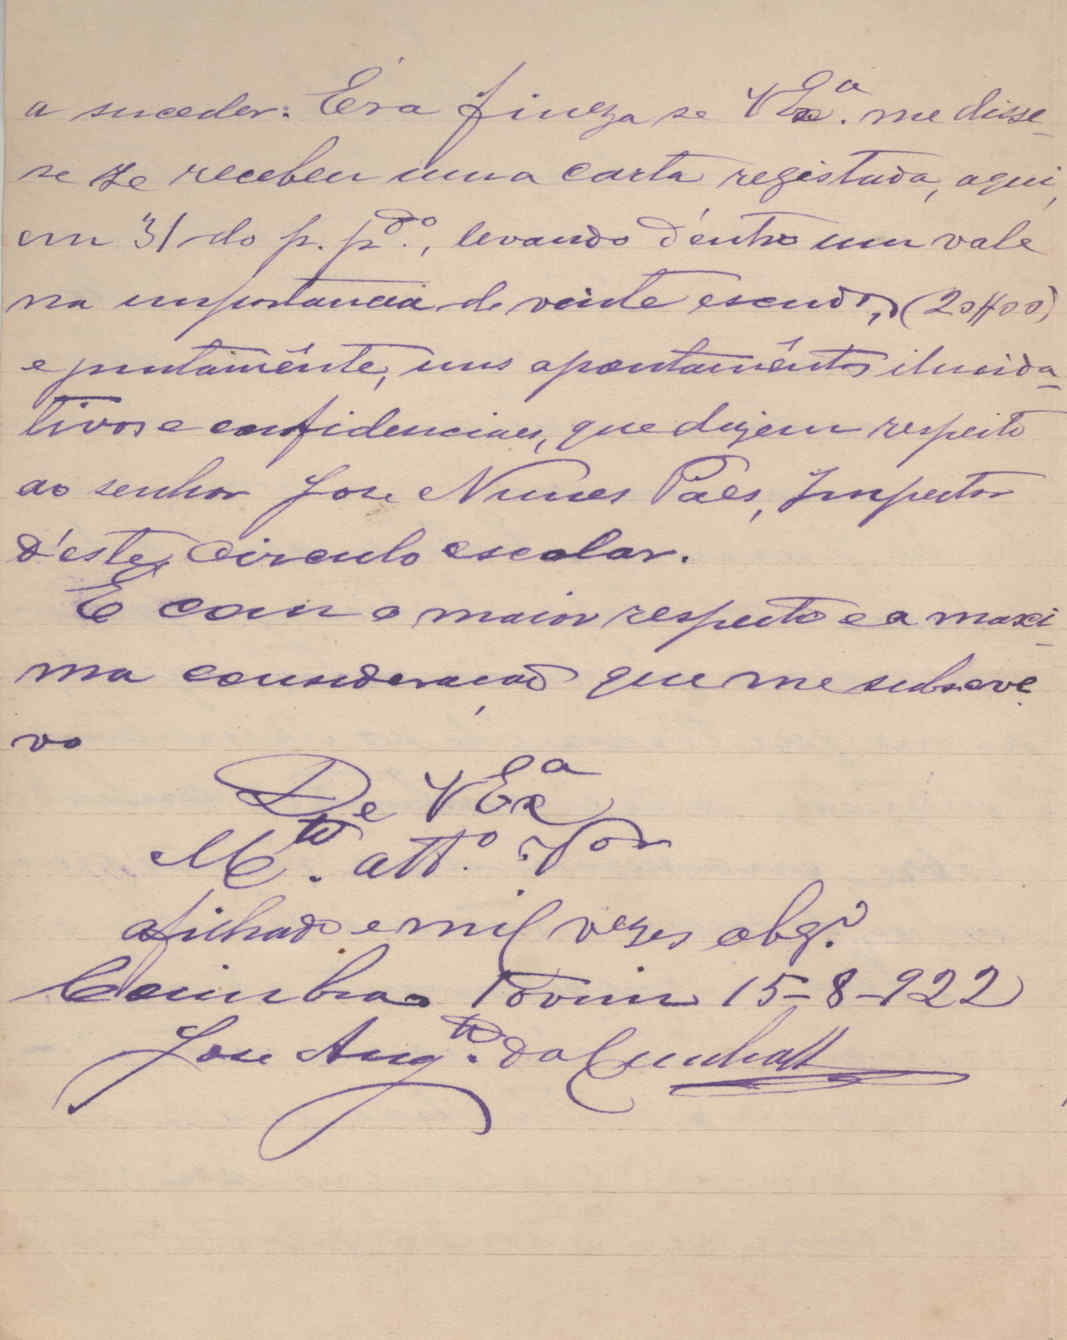 a suceder: Éra fineza se V Exª. me disse-
se se recebeu uma carta registada, aqui,
em 31 do p. pdº., levando d'entro um vale
na importancia de vinte escudos, (20$00)
e juntamênte, uns apontamêntos elucida-
tivos e confidenciaes, que dizem respeito
ao senhor José Nunes Paes, Inspector
d'este, circulo escolar.
E com o maior respeito e a maxi-
ma consideração que me subscre
vo
De V Exª
Mto. attº. Vor
afilhado e mil vezes obgº.
Coimbra Tovim 15-8-922
José Augto. da Cunha